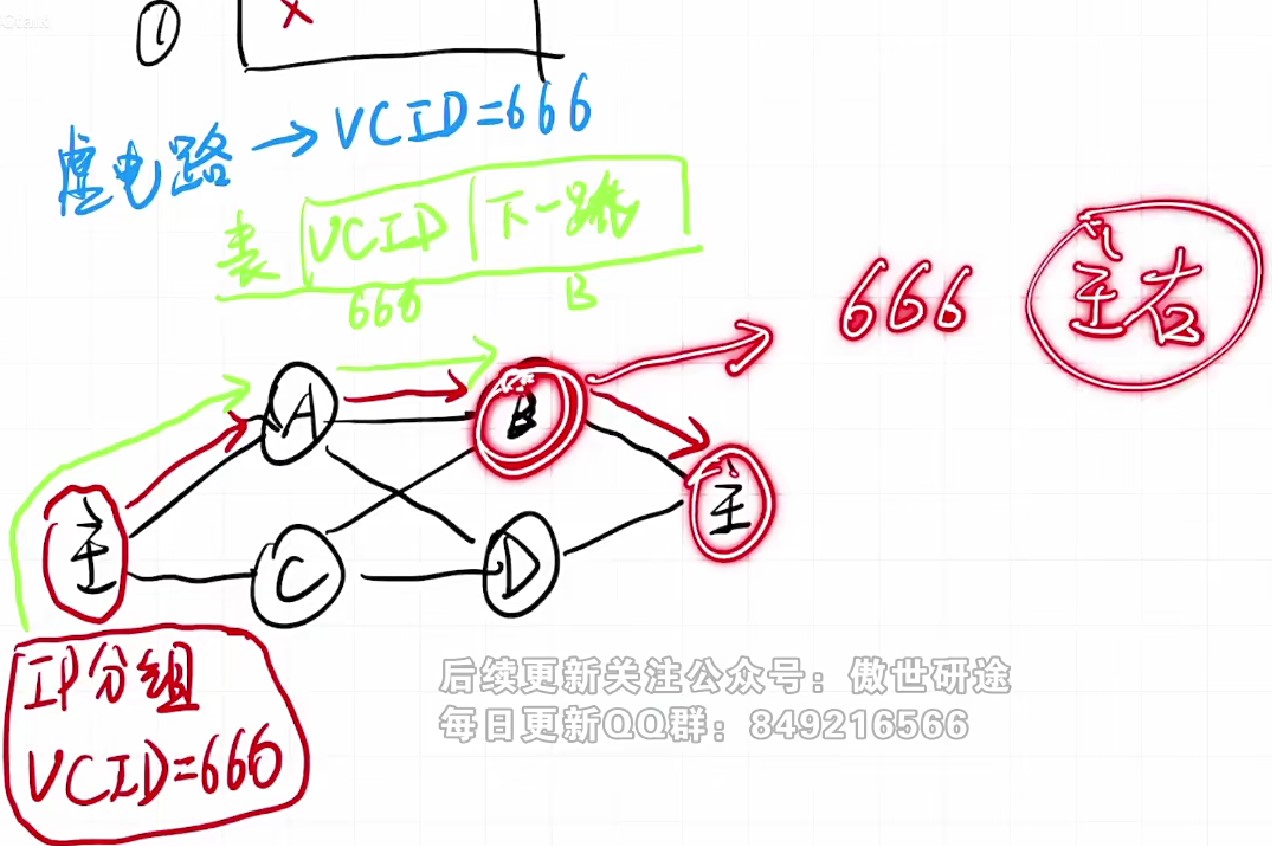 ①
虚电路→VCID=666
表 VCID 下一跳
666 B
666 主右
A B
主 主
C D
IP分组
VCID=666
后续更新关注公众号：傲世研途
每日更新QQ群：849216566